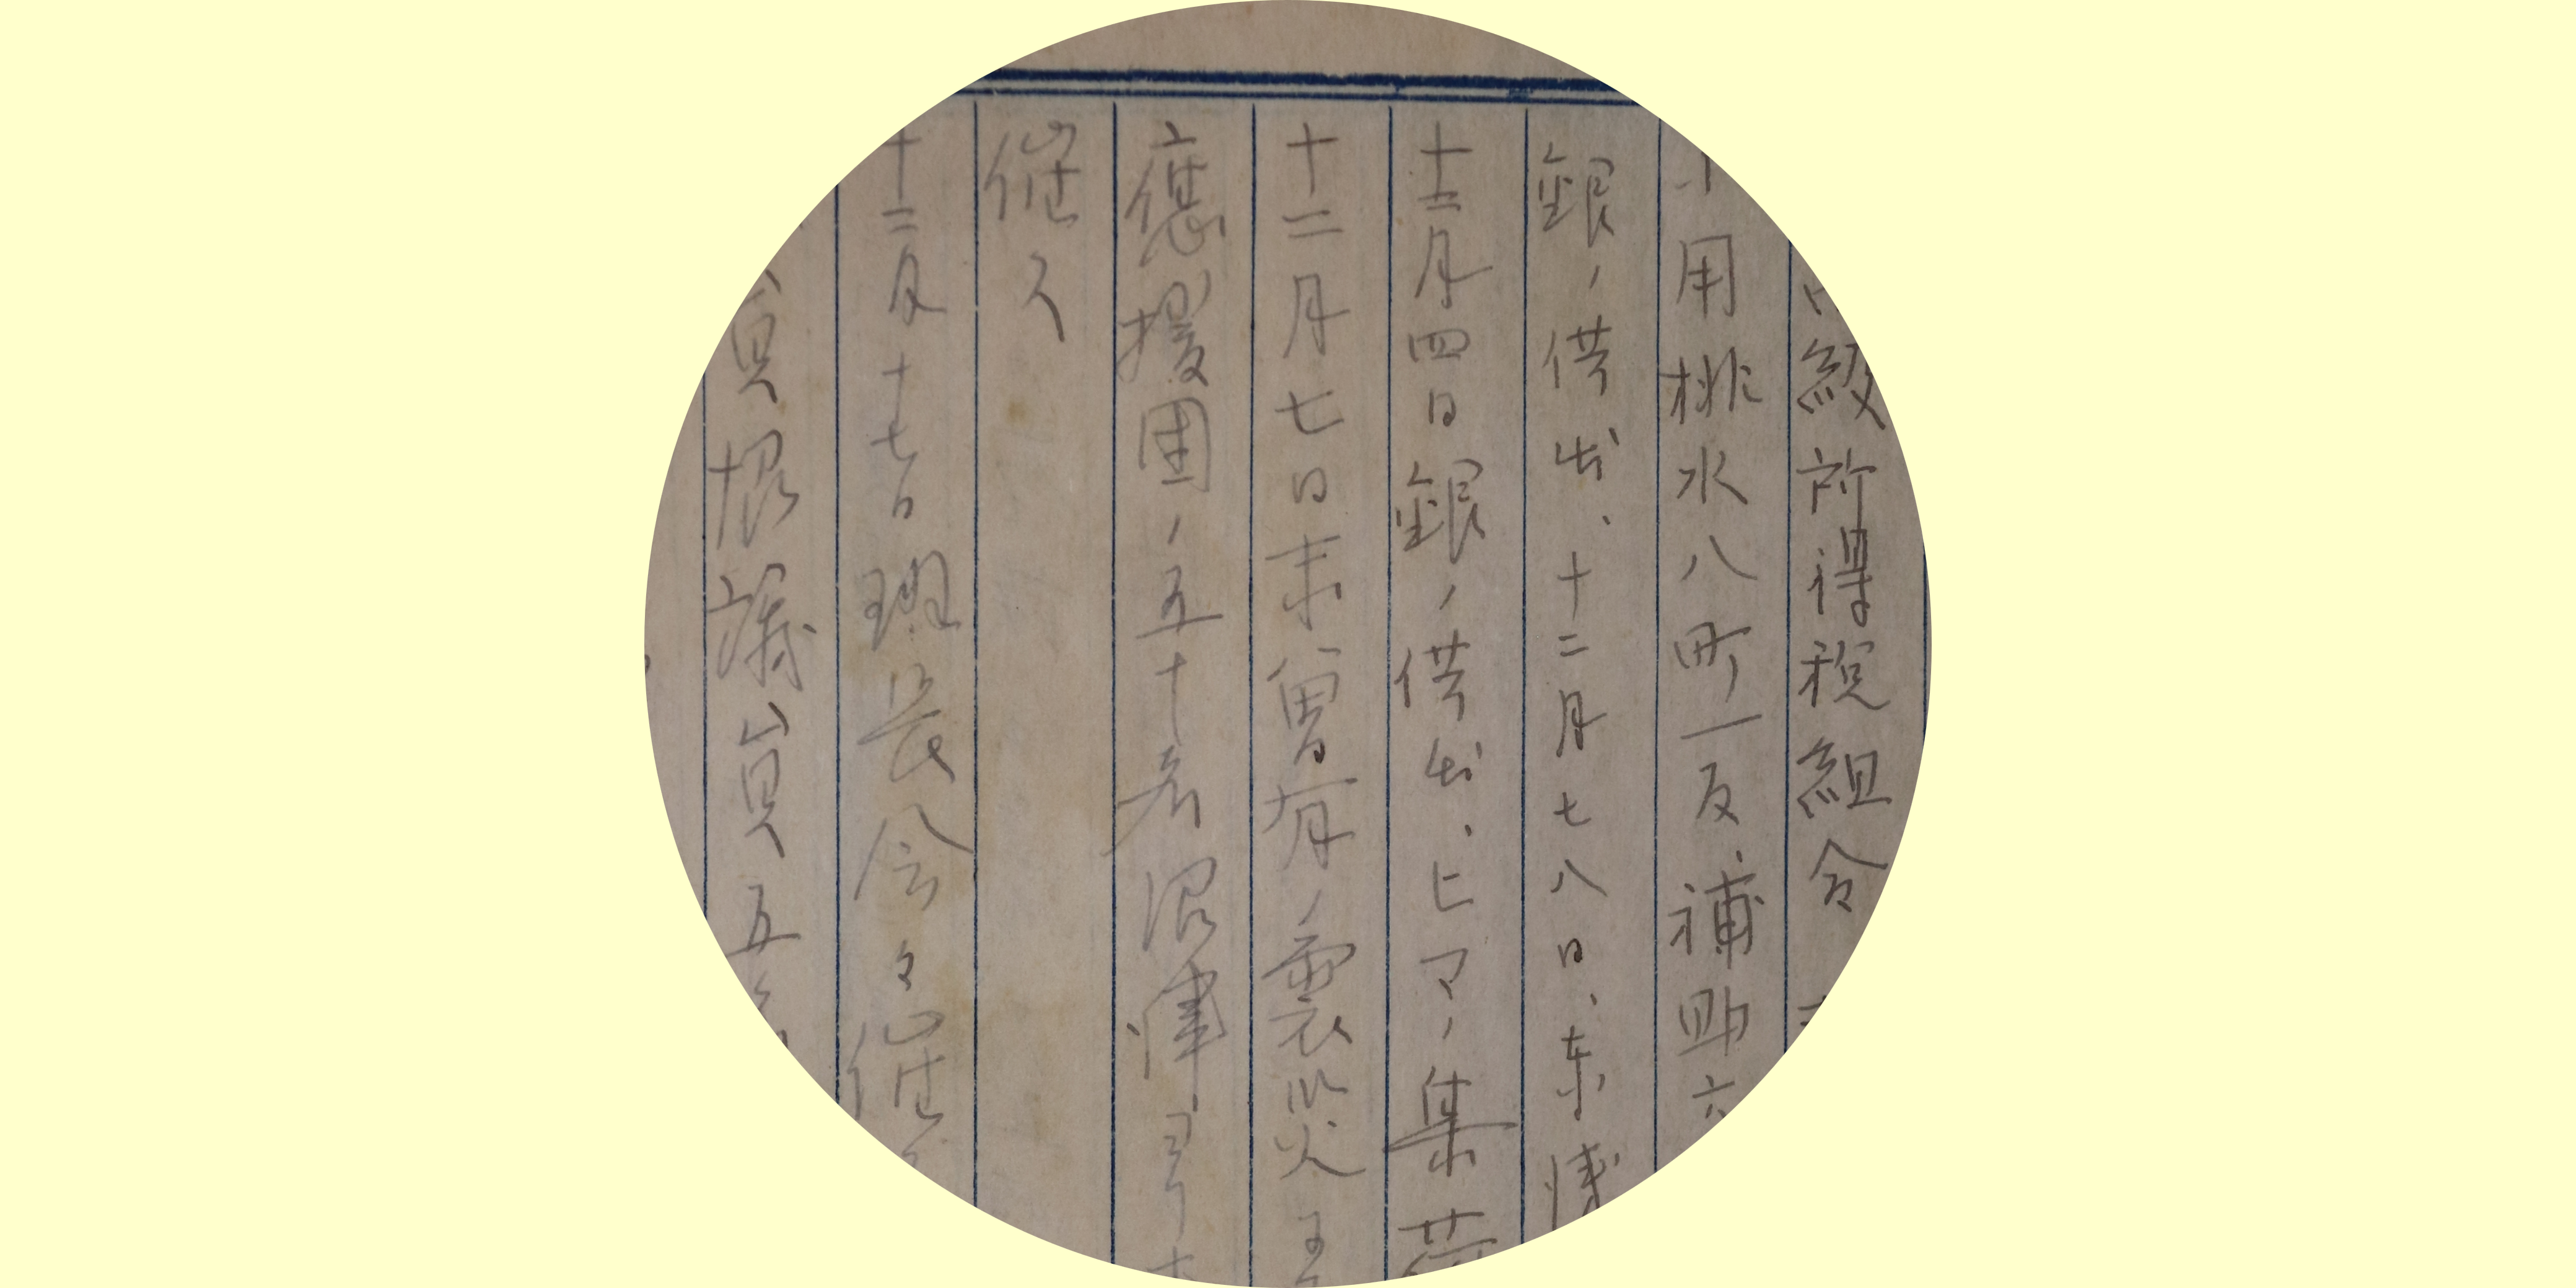 級所得税組合
用排水八町一反、補助六
銀ノ供出、十二月七八日、東浅
十二月四日銀ノ供出、ヒマノ集荷
十二月七日未曽有ノ震災
應援団ノ五十名沼津ヨリ
催ス
十二月十七日班長会ヲ催
員 議員五